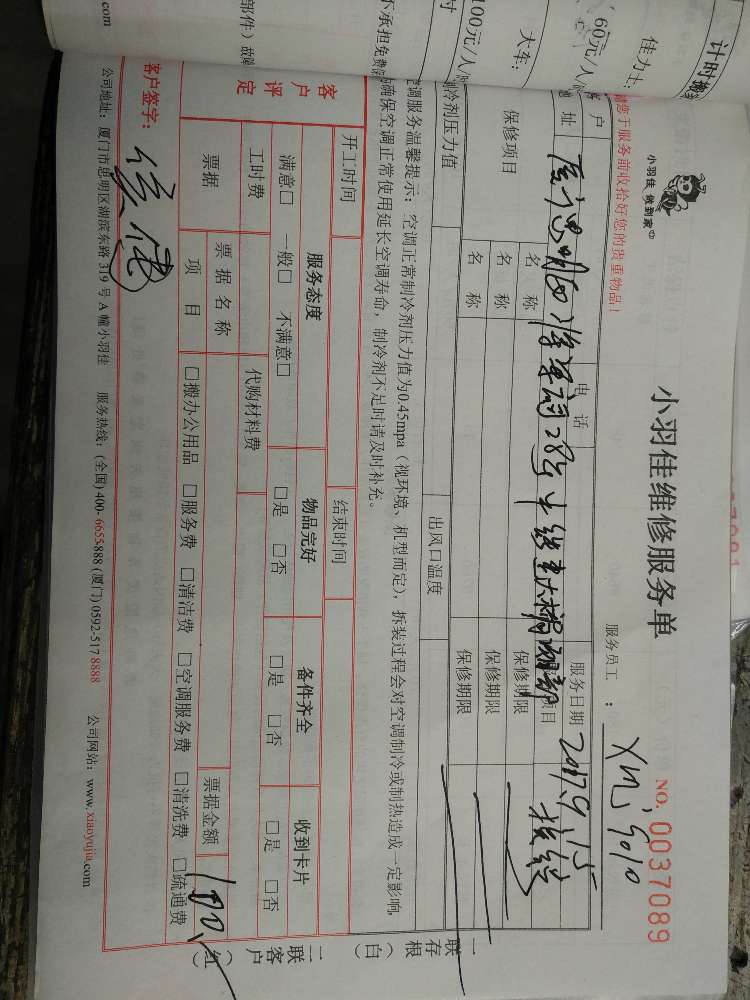 计时搬
佳力士:
60元/人/
大车:
100元/人/
部件)故障
不承担免费
.com
小羽佳 做到家
小羽佳维修服务单
NO. 0037089
服务员工:
请您于服务前收拾好您的贵重物品!
客户
电话
服务日期 2017.9.15
地址
28号
项目
保修项目
名称
保修期限
名称
保修期限
名称
保修期限
制冷剂压力值
出风口温度
空调服务温馨提示:空调正常制冷剂压力值为0.45mpa(视环境、机型而定),拆装过程会对空调制冷或制热造成一定影响,
确保空调正常使用延长空调寿命,制冷剂不足时请及时补充。
开工时间
结束时间
客户评定
服务态度
物品完好
备件齐全
收到卡片
满意□ 一般□ 不满意□
□是 □否
□是 □否
□是 □否
工时费
代购材料费
票据
票据名称
票据金额
180
项目
□搬办公用品 □服务费 □清洁费 □空调服务费 □清洗费 □疏通费
客户签字:
公司地址:厦门市思明区湖滨东路319号A幢小羽佳 服务热线:(全国)400-6655-888 (厦门)0592-517 8888 公司网站:www.xiaoyujia.com
一联存根(白)
二联客户(红)